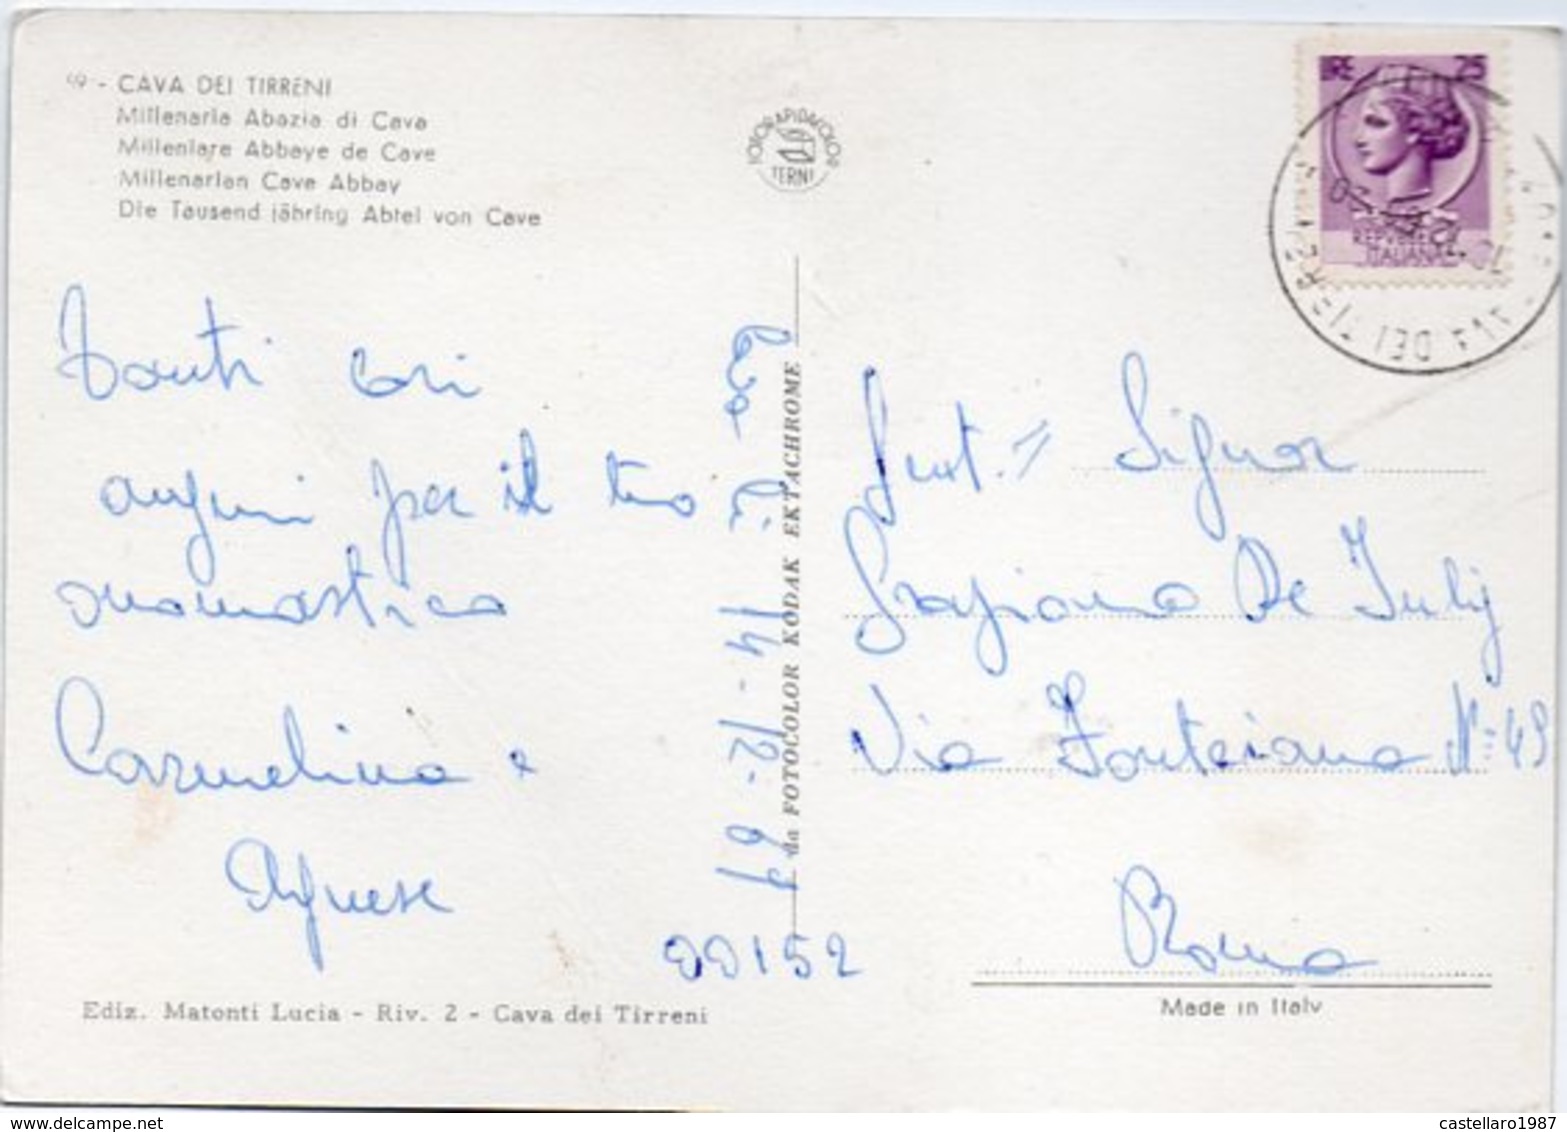 69 - CAVA DEI TIRRENI
Millenaria Abazia di Cava
Milleniare Abbaye de Cave
Millenarian Cava Abbay
Die Tausend jähring Abtei von Cave
FOTORAPIDACOLOR
TERNI
LIRE 25
REPVBBLICA
ITALIANA
CAVA DEI TIRRENI
Tanti cari
auguri per il tuo
onomastico
Carmelina e
Agnese
14-12-69
da FOTOCOLOR KODAK EKTACHROME
Gent. Signor
Graziano De Julij
Via Fonteiana N= 49
00152
Roma
Ediz. Matonti Lucia - Riv. 2 - Cava dei Tirreni
Made in Italy
castellaro1987